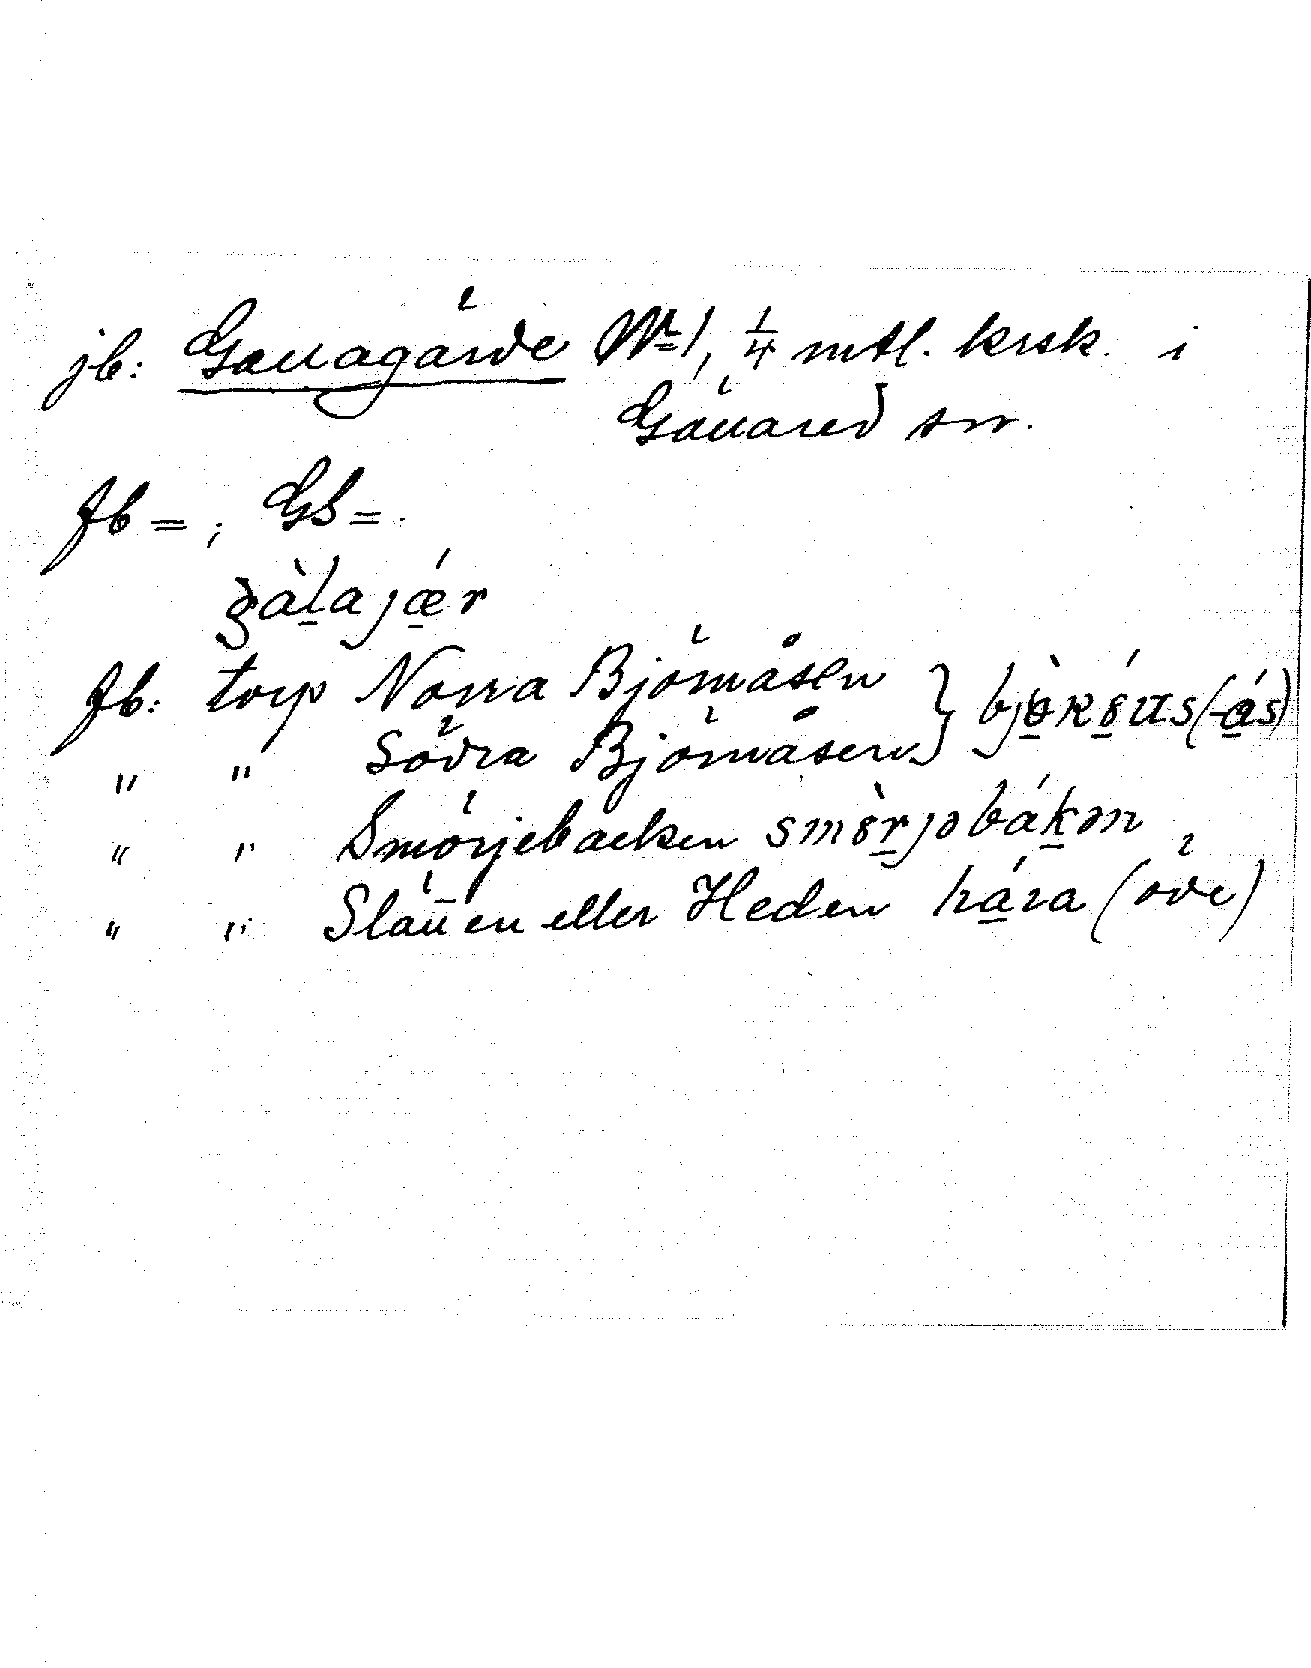 jb: Gällagärde № 1, 1/4 mtl. krsk. i
Gällared sn.
Jb = ; GS = .
gàlajǽr
Jb: torp Norra Björnåsen } bjo̱̊kó̱us(-á̱s)
" " Södra Björnåsen }
" " Smörjebacken smö̀rjəbákən
" " Slätten eller Heden hára (öde)